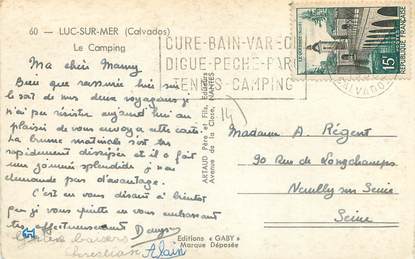 60 — LUC-SUR-MER (Calvados)
Le Camping
CURE-BAIN-VARECH
DIGUE-PECHE-PARC
TENNIS-CAMPING
15F
POSTES
CALVADOS
Ma chère Mamy
Bien que rassurée hier soir
le sort de nos deux voyageurs je
n'ai pu résister aujourd'hui au
plaisir de vous envoyer cette carte.
La brume matinale s'est
rapidement dissipée et il a fait
une journée splendide je n'en
demande pas d'avantage.
C'est en vous disant à bientôt
que je vous quitte en vous embrassant
très affectueusement
Gros baisers
Christian Alain
ARTAUD Père et Fils, Editeurs
Avenue de la Close, NANTES
Editions « GABY »
Marque Déposée
Madame A. Régent
90 Rue de Longchamps
Neuilly sur Seine
Seine